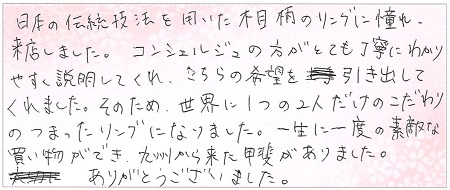 日本の伝統技法を用いた木目柄のリングに憧れ、
来店しました。コンシェルジュの方がとても丁寧にわかり
やすく説明してくれ、こちらの希望を引き出して
くれました。そのため、世界に1つの2人だけのこだわり
のつまったリングになりました。一生に一度の素敵な
買い物ができ、九州から来た甲斐がありました。
ありがとうございました。